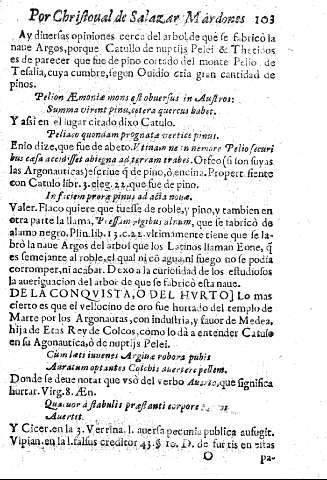 Por Christoual de Salazar Màrdones 103
Ay diuersas opiniones cerca del arbol, de que se fabricò la
naue Argos, porque Catullo de nuptijs Pelei & Thetidos
es de parecer que fue de pino cortado del monte Pelio de
Tesalia, cuya cumbre, segun Ouidio cria gran cantidad de
pinos.
Pelion Æmoniæ mons est obuersus in Austros:
Summa virent pinu, cetera quercus habet.
Y assi en el lugar citado dixo Catulo.
Peliaco quondam prognatæ vertice pinus.
Enio dize, que fue de abeto. Vtinam ne in nemore Pelio securi
bus cæsa accidisset abiegna ad terram trabes. Orfeo (si son suyas
las Argonauticas) escriue q̃ de pino, ò enzina. Propert. siente
con Catulo libr. 3. eleg. 22. que fue de pino.
In faciem proræ pinus ad acta nouæ.
Valer. Flaco quiere que fuesse de roble, y pino, y tambien en
otra parte la llama, alnum, que se fabricò de
alamo negro. Plin. lib. 13. c. 22. vltimamente tiene que se la-
brò la naue Argos del arbol que los Latinos llaman Eone, q̃
es semejante al roble, el qual ni cō agua, ni fuego no se podia
corromper, ni acabar. Dexo a la curiosidad de los estudiosos
la aueriguacion del arbor de que se fabricò esta naue.
DE LA CONQVISTA, O DEL HVRTO] Lo mas
cierto es que el vellocino de oro fue hurtado del templo de
Marte por los Argonautas, con industria, y fauor de Medea,
hija de Etas Rey de Colcos, como lo dà a entender Catulo
en su Agonautica, ò de nuptijs Pelei.
Cùm lecti iuuenes Argiuæ robora pubis
Auratam optantes Colchis auertere pellem.
Donde se deue notar que vsò del verbo Auerto, que significa
hurtar. Virg. 8. Æn.
Quatuor à stabulis præstanti corpore
Auertit.
Y Cicer. en la 3. Verrina. l. auersa pecunia publica aufugit.
Vlpian. en la l. falsus creditor 43. § 10. D. de furtis en estas
O pa-